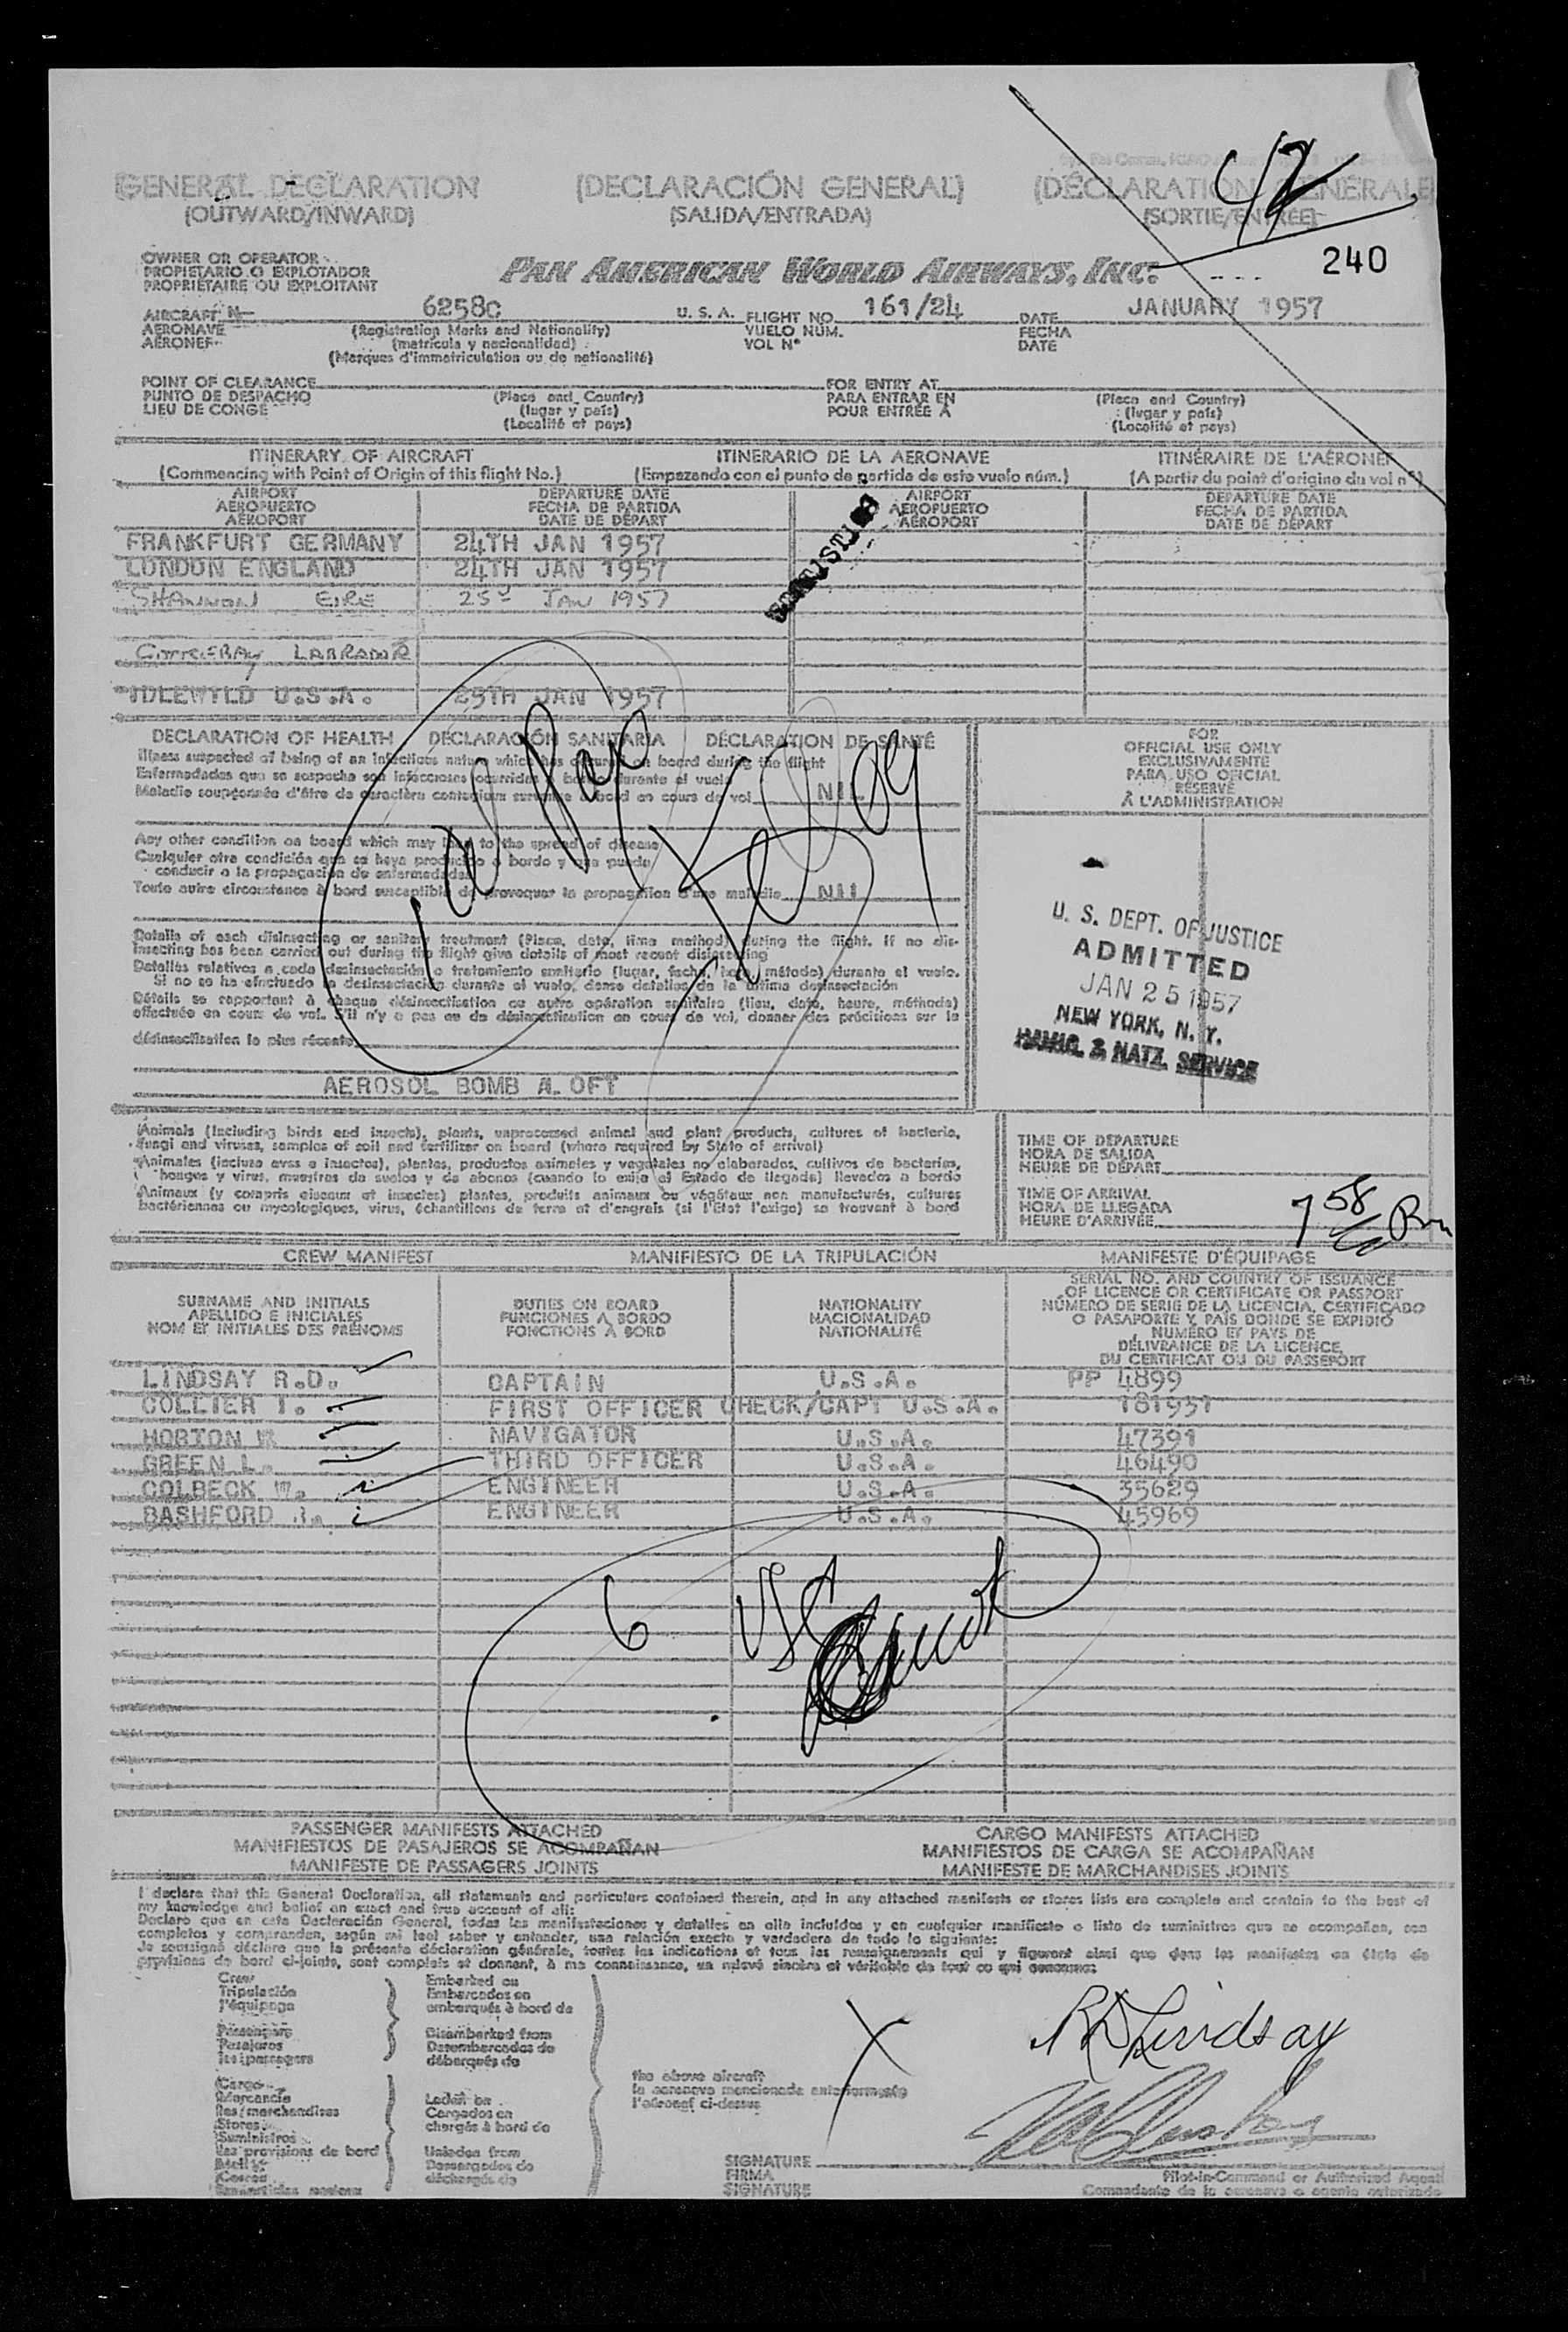 GENERAL DECLARATION (DECLARACIÓN GENERAL) (DÉCLARATION GÉNÉRALE)
(OUTWARD/INWARD) (SALIDA/ENTRADA) (SORTIE/ENTRÉE)
42
240
OWNER OR OPERATOR
PROPIETARIO O EXPLOTADOR
PROPRIÉTAIRE OU EXPLOITANT
PAN AMERICAN WORLD AIRWAYS, INC.
AIRCRAFT N 6258C U. S. A. FLIGHT NO. 161/24 DATE JANUARY 1957
AERONAVE (Registration Marks and Nationality) VUELO NÚM. FECHA
AÉRONEF (matrícula y nacionalidad) VOL Nº DATE
(Marques d'immatriculation ou de nationalité)
POINT OF CLEARANCE (Place and Country) FOR ENTRY AT (Place and Country)
PUNTO DE DESPACHO (lugar y país) PARA ENTRAR EN (lugar y país)
LIEU DE CONGÉ (Localité et pays) POUR ENTRÉE À (Localité et pays)
ITINERARY OF AIRCRAFT ITINERARIO DE LA AERONAVE ITINÉRAIRE DE L'AÉRONEF
(Commencing with Point of Origin of this flight No.) (Empezando con el punto de partida de este vuelo núm.) (A partir du point d'origine du vol nº)
AIRPORT DEPARTURE DATE AIRPORT DEPARTURE DATE
AEROPUERTO FECHA DE PARTIDA AEROPUERTO FECHA DE PARTIDA
AÉROPORT DATE DE DÉPART AÉROPORT DATE DE DÉPART
FRANKFURT GERMANY 24TH JAN 1957
LONDON ENGLAND 24TH JAN 1957
SHANNON EIRE 25 JAN 1957
LABRADOR
IDLEWILD U.S.A. 25TH JAN 1957
DECLARATION OF HEALTH DECLARACIÓN SANITARIA DÉCLARATION DE SANTÉ
Illness suspected of being of an infectious nature which has occurred on board during the flight
Enfermedades que se sospecha son infecciosas ocurridas a bordo durante el vuelo
Maladie soupçonnée d'être de caractère contagieux survenue à bord en cours de vol NIL
Any other condition on board which may lead to the spread of disease
Cualquier otra condición que se haya producido a bordo y que pueda
conducir a la propagación de enfermedades
Toute autre circonstance à bord susceptible de provoquer la propagation d'une maladie NIL
Details of each disinsecting or sanitary treatment (Place, date, time method) during the flight. If no dis-
insecting has been carried out during the flight give details of most recent disinsecting
Detalles relativos a cada desinsectación o tratamiento sanitario (lugar, fecha, hora, método) durante el vuelo.
Si no se ha efectuado la desinsectación durante el vuelo, dense detalles de la última desinsectación
Détails se rapportant à chaque désinsectisation ou autre opération sanitaire (lieu, date, heure, méthode)
effectuée en cours de vol. S'il n'y a pas eu de désinsectisation en cours de vol, donner des précisions sur la
désinsectisation la plus récente
AEROSOL BOMB A. OFT
FOR
OFFICIAL USE ONLY
EXCLUSIVAMENTE
PARA USO OFICIAL
RÉSERVÉ
À L'ADMINISTRATION
U. S. DEPT. OF JUSTICE
ADMITTED
JAN 25 1957
NEW YORK, N. Y.
IMMIG. & NATZ. SERVICE
Animals (including birds and insects), plants, unprocessed animal and plant products, cultures of bacteria,
fungi and viruses, samples of soil and fertilizer on board (where required by State of arrival)
Animales (incluso aves e insectos), plantas, productos animales y vegetales no elaborados, cultivos de bacterias,
hongos y virus, muestras de suelos y de abonos (cuando lo exija el Estado de llegada) llevados a bordo
Animaux (y compris oiseaux et insectes) plantes, produits animaux ou végétaux non manufacturés, cultures
bactériennes ou mycologiques, virus, échantillons de terre et d'engrais (si l'État l'exige) se trouvant à bord
TIME OF DEPARTURE
HORA DE SALIDA
HEURE DE DÉPART
TIME OF ARRIVAL
HORA DE LLEGADA
HEURE D'ARRIVÉE 7 58
CREW MANIFEST MANIFIESTO DE LA TRIPULACIÓN MANIFESTE D'ÉQUIPAGE
SURNAME AND INITIALS
APELLIDO E INICIALES
NOM ET INITIALES DES PRÉNOMS
DUTIES ON BOARD
FUNCIONES A BORDO
FONCTIONS À BORD
NATIONALITY
NACIONALIDAD
NATIONALITÉ
SERIAL NO. AND COUNTRY OF ISSUANCE
OF LICENCE OR CERTIFICATE OR PASSPORT
NÚMERO DE SERIE DE LA LICENCIA, CERTIFICADO
O PASAPORTE Y PAÍS DONDE SE EXPIDIÓ
NUMÉRO ET PAYS DE
DÉLIVRANCE DE LA LICENCE,
DU CERTIFICAT OU DU PASSEPORT
LINDSAY R.D. CAPTAIN U.S.A. PP 4899
COLLIER T. FIRST OFFICER CHECK/CAPT U.S.A. 181931
HORTON W NAVIGATOR U.S.A. 47391
GREEN L. THIRD OFFICER U.S.A. 46490
COLBECK W. ENGINEER U.S.A. 35629
BASHFORD ENGINEER U.S.A. 45969
6
PASSENGER MANIFESTS ATTACHED CARGO MANIFESTS ATTACHED
MANIFIESTOS DE PASAJEROS SE ACOMPAÑAN MANIFIESTOS DE CARGA SE ACOMPAÑAN
MANIFESTE DE PASSAGERS JOINTS MANIFESTE DE MARCHANDISES JOINTS
I declare that this General Declaration, all statements and particulars contained therein, and in any attached manifests or stores lists are complete and contain to the best of
my knowledge and belief an exact and true account of all:
Declaro que en esta Declaración General, todas las manifestaciones y detalles en ella incluidos y en cualquier manifiesto o lista de suministros que se acompañan, son
completos y comprenden, según mi leal saber y entender, una relación exacta y verdadera de todo lo siguiente:
Je soussigné déclare que la présente déclaration générale, toutes les indications et tous les renseignements qui y figurent ainsi que dans les manifestes ou états de
provisions de bord ci-joints, sont complets et donnent, à ma connaissance, un relevé sincère et véritable de tout ce qui concerne:
Crew
Tripulación
l'équipage
Passengers
Pasajeros
les passagers
Cargo
Mercancía
les marchandises
Stores
Suministros
les provisions de bord
Embarked on
Embarcados en
embarqués à bord de
Disembarked from
Desembarcados de
débarqués de
Laden on
Cargados en
chargés à bord de
Unladen from
Descargados de
déchargés de
the above aircraft
la aeronave mencionada anteriormente
l'aéronef ci-dessus
X
RD Lindsay
SIGNATURE
FIRMA
SIGNATURE
Pilot-in-Command or Authorized Agent
Comandante de la aeronave o agente autorizado